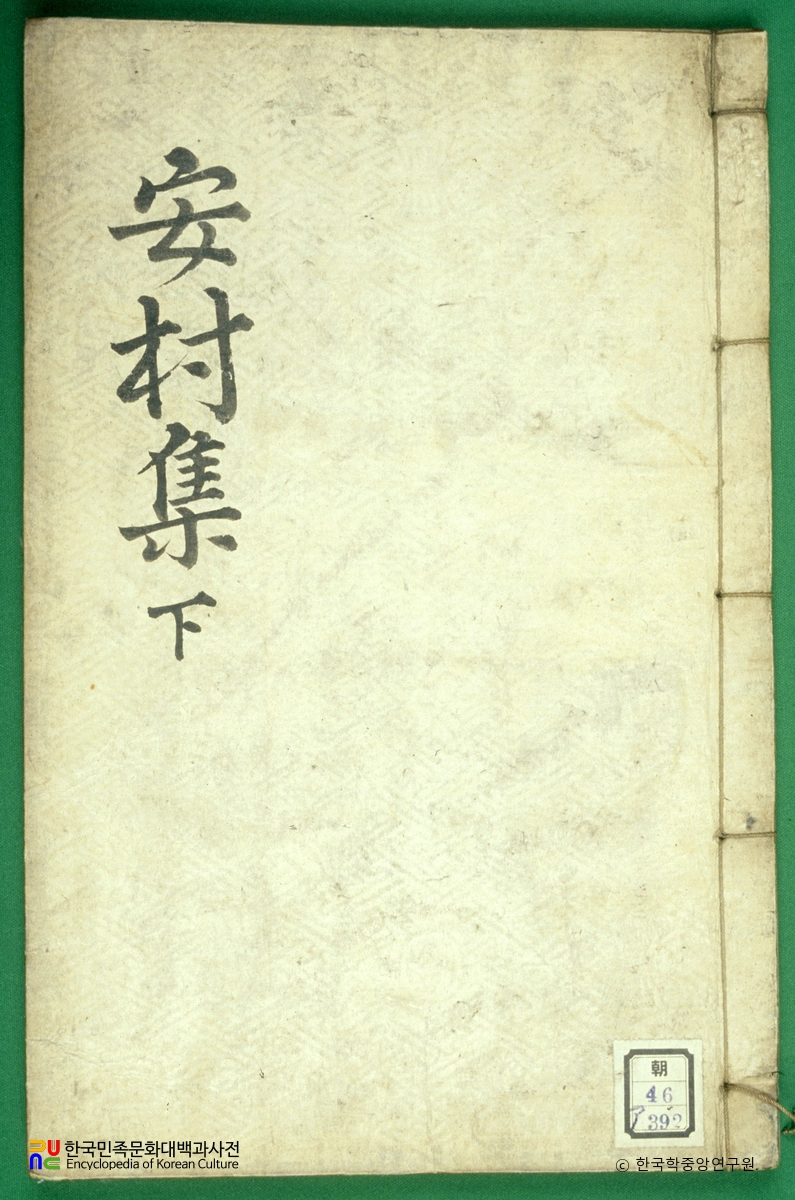 安村集下
朝
46
392
한국민족문화대백과사전
Encyclopedia of Korean Culture
© 한국학중앙연구원